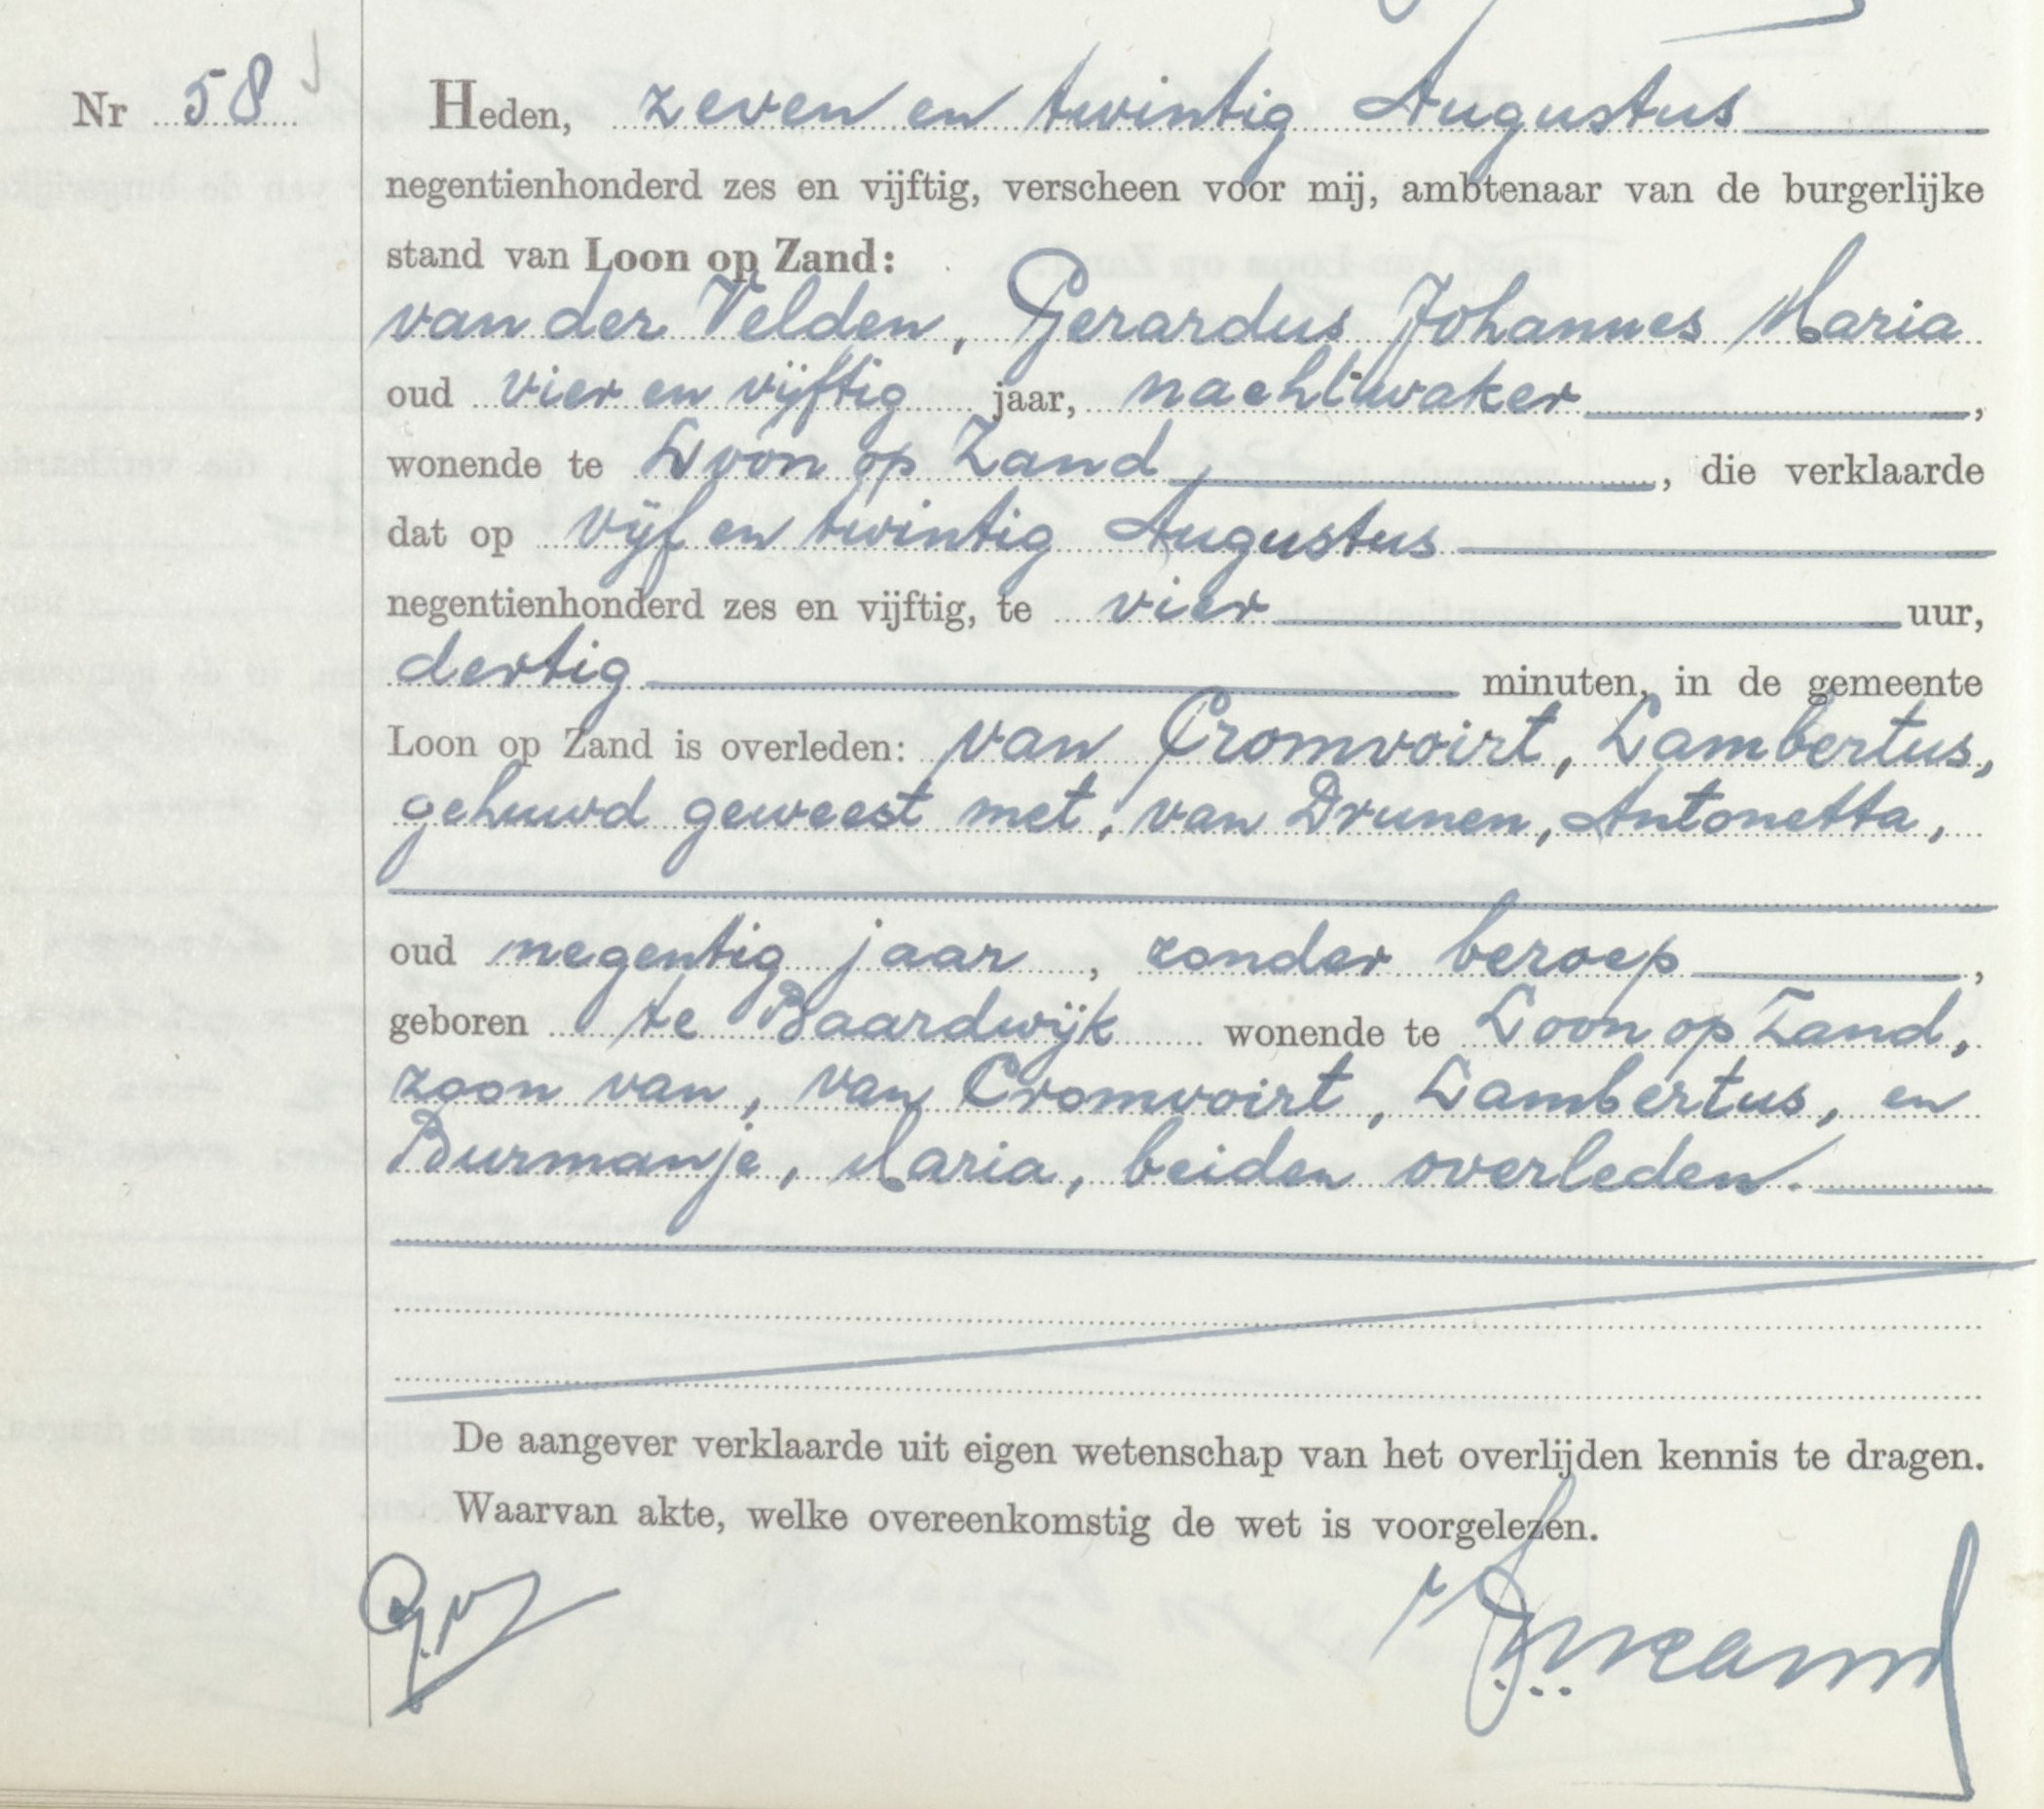 Nr 58
Heden, zeven en twintig Augustus
negentienhonderd zes en vijftig, verscheen voor mij, ambtenaar van de burgerlijke
stand van Loon op Zand:
van der Velden, Gerardus Johannes Maria
oud vier en vijftig jaar, nachtwaker,
wonende te Loon op Zand, die verklaarde
dat op vijf en twintig Augustus
negentienhonderd zes en vijftig, te vier uur,
dertig minuten, in de gemeente
Loon op Zand is overleden: van Cromvoirt, Lambertus,
gehuwd geweest met, van Drunen, Antonetta,
oud negentig jaar, zonder beroep,
geboren te Baardwijk wonende te Loon op Zand,
zoon van, van Cromvoirt, Lambertus, en
Burmanje, Maria, beiden overleden.
De aangever verklaarde uit eigen wetenschap van het overlijden kennis te dragen.
Waarvan akte, welke overeenkomstig de wet is voorgelezen.